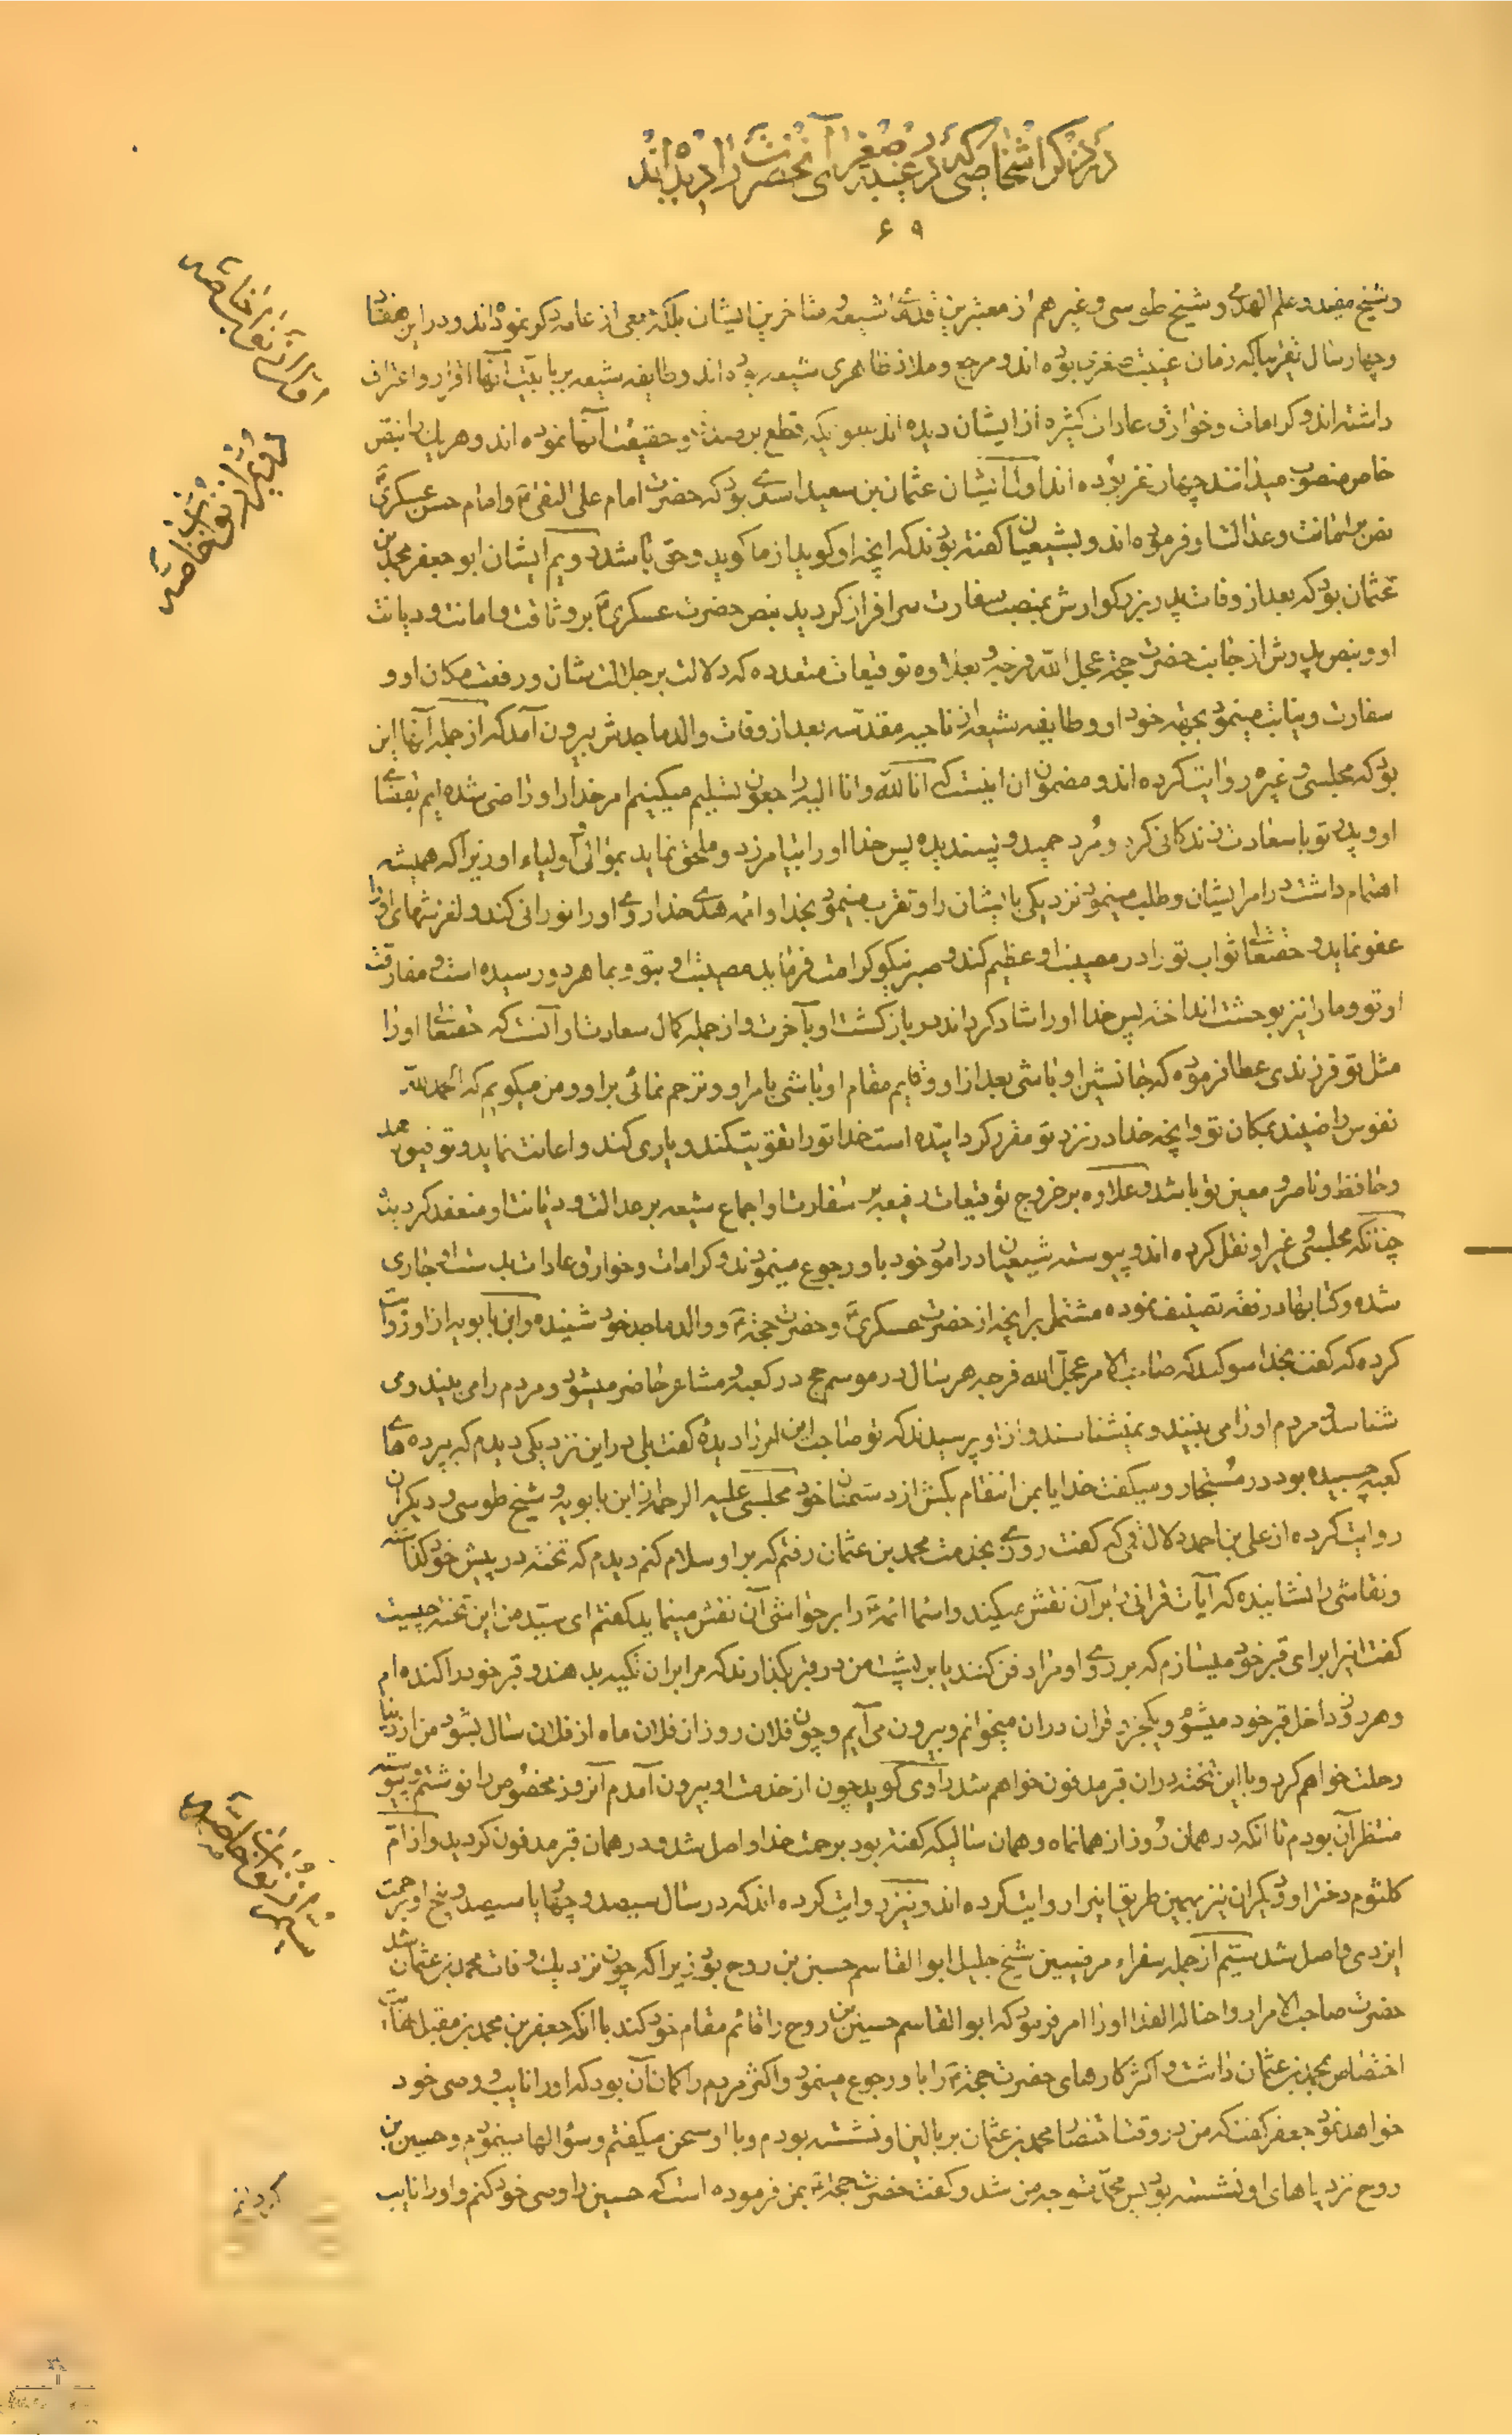 در ذکر اشخاصی که در غیبت صغری آنحضرت را دیده اند
۶۹
و شیخ مفید و علم الهدی و شیخ طوسی و غیر هم از معتبرین قدماء شیعه و متاخرین ایشان بلکه جمعی از عامه ذکر نموده اند و در این هفتاد
و چهار سال تقریبا که زمان غیبت صغری بوده اند و مرجع و ملاذ ظاهری شیعه بوده اند و طایفه شیعه بر بابیّت آنها اقرار و اعتراف
داشته اند و کرامات و خوارق عادات کثیره از ایشان دیده اند بسویکه قطع بر صدق و حقیقت آنها نموده اند و هر یک را بنص
خاص منصوب میدانند چهار نفر بوده اند اول ایشان عثمان بن سعید اسدی بود که حضرت امام علی النقی ع و امام حسن عسکری ع
نص بر امانت و عدالت او فرموده اند و بشیعیان گفته بودند که آنچه او گوید از ما گوید و حق باشد دویم ایشان ابو جعفر محمد بن
عثمان بود که بعد از وفات پدر بزرگوارش بمنصب سفارت سرافراز گردید بنص حضرت عسکری ع بر وثاقت و امانت و دیانت
او و بنص پدرش از جانب حضرت حجة عجل الله فرجه و بعلاوه توقیعات متعدده که دلالت بر جلالت شان و رفعت مکان او و
سفارت و نیابت مینمود بجهة خود او و طایفه شیعه از ناحیه مقدسه بعد از وفات والد ماجدش بیرون آمد که از جمله آنها این
بود که مجلسی و غیره روایت کرده اند و مضمون ان اینست که انا لله و انا الیه راجعون تسلیم میکنیم امر خدا را و راضی شده ایم بقضاء
او و پدر تو با سعادت زندگانی کرد و مُرد حمید و پسندیده پس خدا او را بیامرزد و ملحق نماید بموالی و اولیاء او زیرا که همیشه
اهتمام داشت در امر ایشان و طلب مینمود نزدیکی با ایشان را و تقرب مینمود بخدا و ائمه هدی خدا روی او را نورانی کند و لغزشهای او را
عفو نماید و حقتعالی ثواب تو را در مصیبت او عظیم کند و صبر نیکو کرامت فرماید مصیبت او بتو و بما هر دو رسیده است و مفارقت
او تو و ما را نیز بوحشت انداخته پس خدا او را شاد گرداند در بازگشت او بآخرت و از جمله کمال سعادت او آنست که حقتعالی او را
مثل تو فرزندی عطا فرموده که جانشین او باشی بعد از او و قایم مقام او باشی بامر او و ترحم نمائی بر او و من میگویم که الحمد لله
نفوس راضیند بمکان تو و آنچه خدا در نزد تو مقرر گردانیده است خدا تو را تقویت کند و یاری کند و اعانت نماید و توفیق دهد
و حافظ و ناصر و معین تو باشد و علاوه بر خروج توقیعات رفیعه بر سفارت او اجماع شیعه بر عدالت و دیانت او منعقد گردید
چنانکه مجلسی و غیر او نقل کرده اند و پیوسته شیعیان در امور خود باو رجوع مینمودند و کرامات و خوارق عادات بدست او جاری
شده و کتابها در فقه تصنیف نموده مشتمل بر آنچه از حضرت عسکری ع و حضرت حجة ع و والد ماجد خود شنیده و ابن بابویه از او روایت
کرده که گفت بخدا سوگند که صاحب الامر عجل الله فرجه هر سال در موسم حج در کعبه و مشاعر حاضر میشود و مردم را می بیند و می
شناسد و مردم او را می بینند و نمیشناسند و از او پرسیدند که تو صاحب این امر را دیده گفت بلی در این نزدیکی دیدم که بپرده های
کعبه چسبیده بود در مُستجار و میگفت خدایا بمن انتقام بکش از دشمنان خود مجلسی علیه الرحمه از ابن بابویه و شیخ طوسی و دیگران
روایت کرده از علی بن احمد دلال قمی که گفت روزی بخدمت محمد بن عثمان رفتم که بر او سلام کنم دیدم که تخته در پیش خود گذاشته
و نقاشی را نشانیده که آیات قرانی را بر آن نقش میکند و اسماء ائمه ع را بر حواشی آن نقش مینماید گفتم ای سید من این تخته چیست
گفت اینرا برای قبر خود میسازم که بر روی او مرا دفن کنند یا بر پشت من در قبر بگذارند که مرا بر ان تکیه بدهند و قبر خود را کنده ام
و هر روز داخل قبر خود میشوم و یکجزو قران در ان میخوانم و بیرون می آیم و چون فلان روز از فلان ماه از فلان سال بشود من از دنیا
رحلت خواهم کرد و با این تخته در ان قبر مدفون خواهم شد راوی گوید چون از خدمت او بیرون آمدم آنروز مخصوص را نوشتم و پیوسته
منتظر آن بودم تا آنکه در همان روز از همانماه و همان سالیکه گفته بود برحمت خدا واصل شد و در همان قبر مدفون گردید و از ام
کلثوم دختر او و دیگران نیز بهمین طریق اینرا روایت کرده اند و نیز روایت کرده اند که در سال سیصد و چهار یا سیصد و پنج او برحمت
ایزدی واصل شد سیّم از جمله سفراء مرضیین شیخ جلیل ابو القاسم حسین بن روح بود زیرا که چون نزدیک وفات محمد بن عثمان شد
حضرت صاحب الامر ارواحنا له الفداء او را امر فرمود که ابو القاسم حسین بن روح را قائم مقام خود کند با آنکه جعفر بن محمد بن مقبل نهایت
اختصاص بمحمد بن عثمان داشت و اکثر کارهای حضرت حجة ع را باو رجوع مینمود و اکثر مردم را گمان آن بود که او را نایب و وصی خود
خواهد نمود جعفر گفت که من در وقت احتضار محمد بن عثمان بر بالین او نشسته بودم و با او سخن میگفتم و سؤالها مینمودم و حسین بن
روح نزد پاهای او نشسته بود پس محمد متوجه من شد و گفت حضرت حجة ع بمن فرموده است که حسین را وصی خود کنم و او را نایب
گردانم